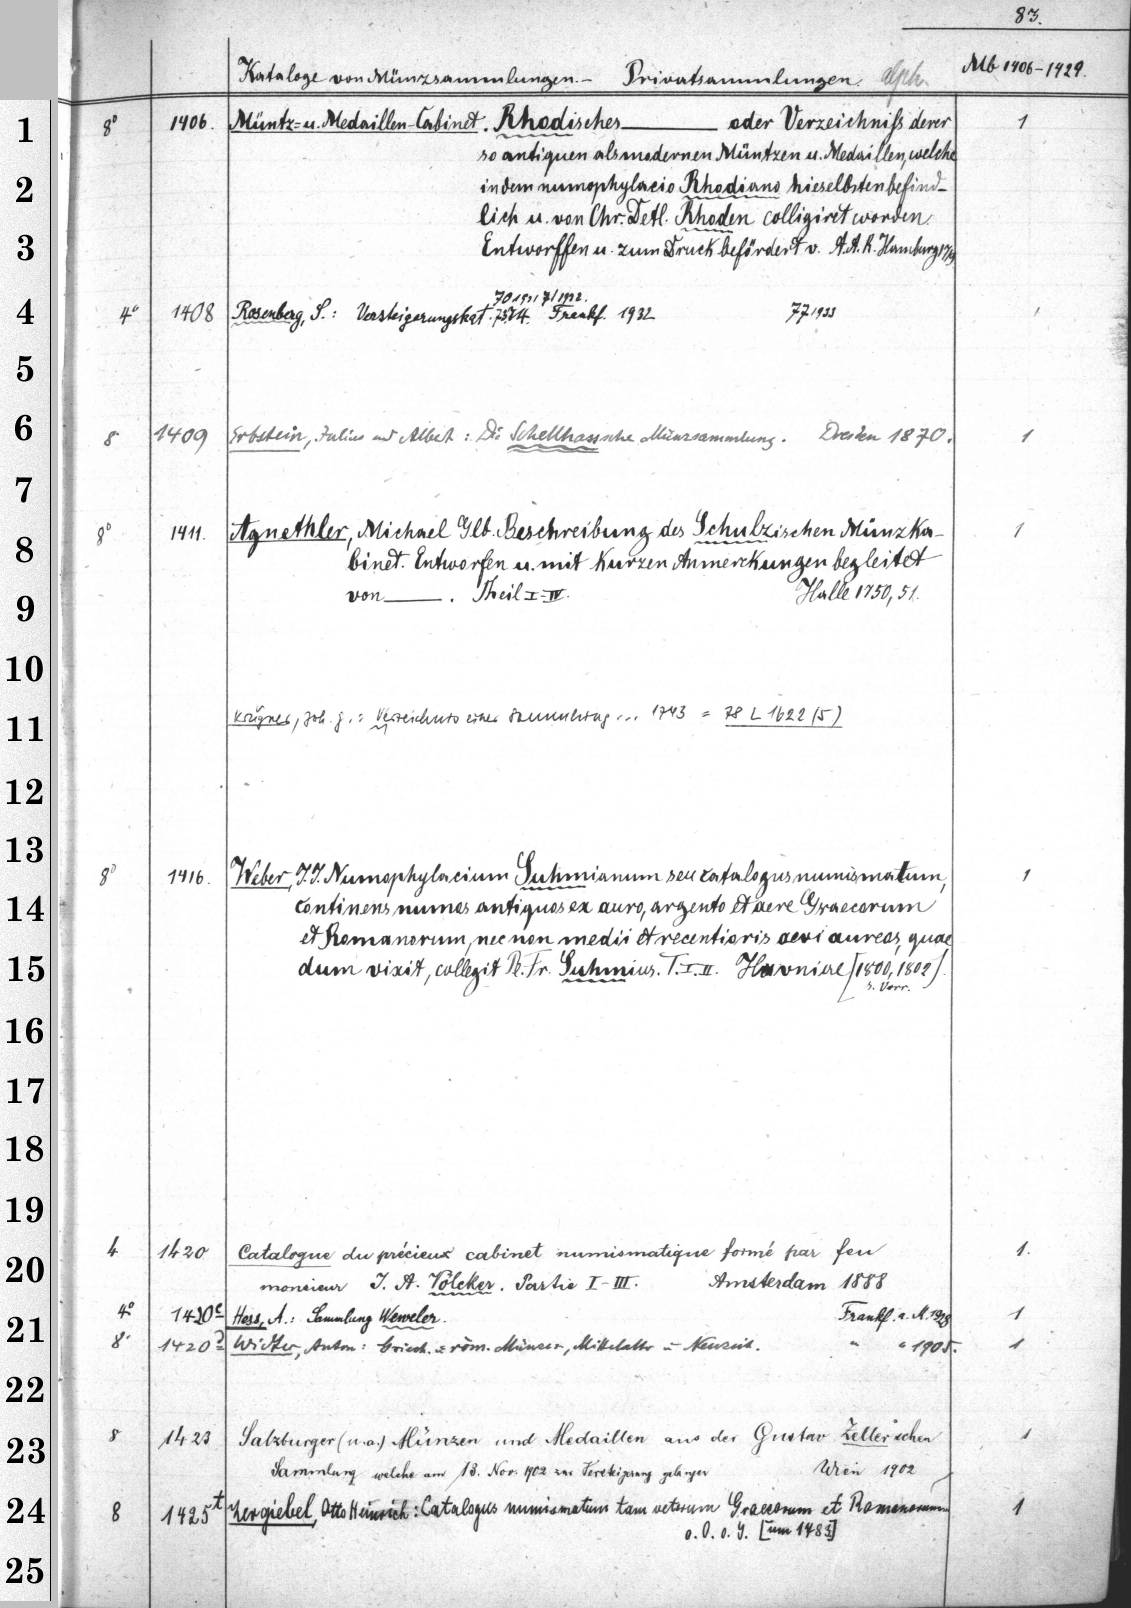 83.
Kataloge von Münzsammlungen. – Privatsammlungen. alph. Mb 1406–1429.
1
8° 1406. Müntz= u. Medaillen-Cabinet. Rhodisches ——— oder Verzeichniß derer 1
so antiquen als modernen Müntzen u. Medaillen, welche
2
in dem numophylacio Rhodiano hieselbsten befind-
lich u. von Chr. Detl. Rhoden colligiret worden.
3
Entworffen u. zum Druck befördert v. A. A. R. Hamburg
70 1931 71 1932.
4
4° 1408 Rosenberg, S.: Versteigerungskat. Frankf. 1932 77 1933 1
5
6
8 1409 Erbstein, Julius und Albert: Die Schellhasssche Münzsammlung. Dresden 1870. 1
7
8° 1411. Agnethler, Michael Glb. Beschreibung des Schulzischen Münzka- 1
8
binet. Entworfen u. mit kurzen Anmerckungen begleitet
9
von ——. Theil I–IV. Halle 1750, 51.
10
11
Krügner, Joh. G.: Verzeichnis einer Sammlung ... 1743 = 78 L 1622 (5)
12
13
8° 1416. Weber, J. J. Numophylacium Suhmianum seu catalogus numismatum, 1
14
continens numos antiquos ex auro, argento et aere Graecorum
et Romanorum, nec non medii et recentioris aevi aureos, quae
15
dum vixit, collegit P. Fr. Suhmius. T. I. II. Havniae [1800, 1802].
s. Vorr.
16
17
18
19
4 1420 Catalogue du précieux cabinet numismatique formé par feu 1.
20
monsieur J. A. Völcker. Partie I–III. Amsterdam 1888
4° 1420c Hess, A.: Sammlung Weweler. Frankf. a. M. 1929 1
21
8° 1420d Widter, Anton: Griech. u. röm. Münzen, Mittelalter u. Neuzeit. " " 1905. 1
22
8 1423 Salzburger (u. a.) Münzen und Medaillen aus der Gustav Zeller'schen 1
23
Sammlung welche am 13. Nov. 1902 zur Versteigerung gelangen Wien 1902
24
8 1425t Zergiebel, Otto Heinrich: Catalogus numismatum tam veterum Graecorum et Romanorum 1
o. O. o. J.
25